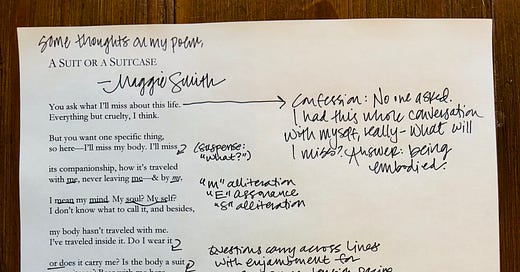 Some thoughts on my poem,
A SUIT OR A SUITCASE
—Maggie Smith
You ask what I'll miss about this life.
Everything but cruelty, I think.
Confession: No one asked.
I had this whole conversation
with myself, really—what will
I miss? Answer: being
embodied.
But you want one specific thing,
so here—I'll miss my body. I'll miss
(suspense:
"what?")
its companionship, how it's traveled
with me, never leaving me—& by my,
"m" alliteration
"E" assonance
"S" alliteration
I mean my mind. My soul? My self?
I don't know what to call it, and besides,
my body hasn't traveled with me.
I've traveled inside it. Do I wear it,
or does it carry me? Is the body a suit
Questions carry across lines
with enjambment for